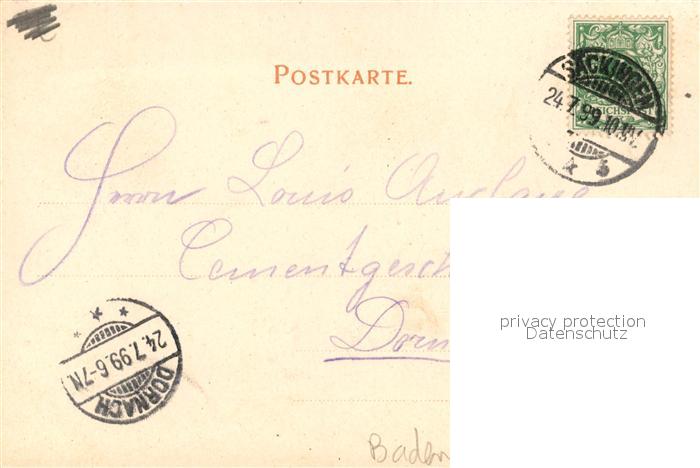 POSTKARTE.
SÄCKINGEN
24.7.99.10.11V.
REICHSPOST
Herrn Louis
Cementgesch
Dorn
privacy protection
Datenschutz
24.7.99.6-7N.
DORNACH
Baden